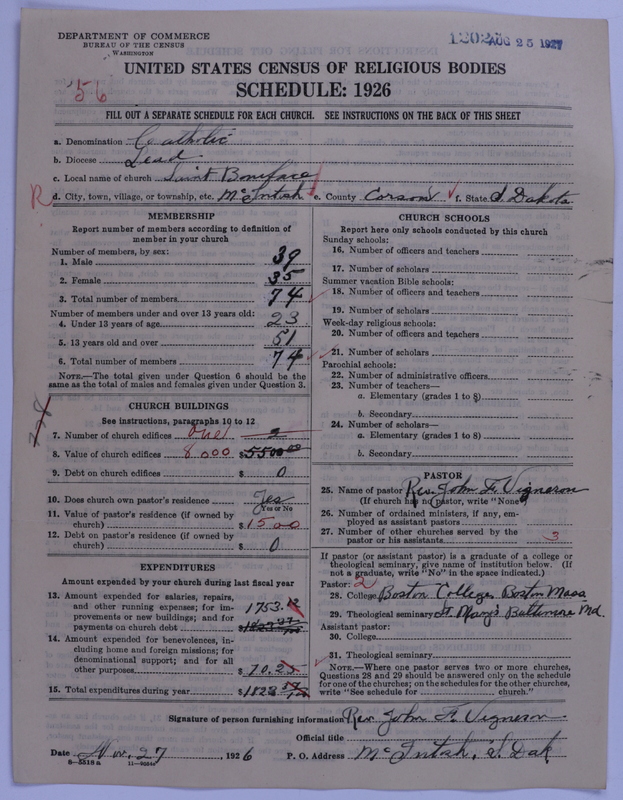 DEPARTMENT OF COMMERCE
BUREAU OF THE CENSUS
WASHINGTON
AUG 25 1927
UNITED STATES CENSUS OF RELIGIOUS BODIES
'56
SCHEDULE: 1926
FILL OUT A SEPARATE SCHEDULE FOR EACH CHURCH. SEE INSTRUCTIONS ON THE BACK OF THIS SHEET
a. Denomination Catholic
b. Diocese Lead
c. Local name of church Saint Boniface
R d. City, town, village, or township, etc. McIntosh e. County Corson f. State S. Dakota
MEMBERSHIP
Report number of members according to definition of
member in your church
Number of members, by sex:
1. Male 39
2. Female 35
3. Total number of members 74
Number of members under and over 13 years old:
4. Under 13 years of age 23
5. 13 years old and over 51
6. Total number of members 74
NOTE.—The total given under Question 6 should be the
same as the total of males and females given under Question 3.
CHURCH BUILDINGS
See instructions, paragraphs 10 to 12
7. Number of church edifices one 2
8. Value of church edifices 8,000 $5500 00
9. Debt on church edifices $ 0
10. Does church own pastor's residence Yes
Yes or No
11. Value of pastor's residence (if owned by
church) $1500
12. Debt on pastor's residence (if owned by
church) $ 0
EXPENDITURES
Amount expended by your church during last fiscal year
13. Amount expended for salaries, repairs,
and other running expenses; for im-
provements or new buildings; and for
payments on church debt 1753.12
14. Amount expended for benevolences, in-
cluding home and foreign missions; for
denominational support; and for all
other purposes $ 70.25
15. Total expenditures during year $1823 37
CHURCH SCHOOLS
Report here only schools conducted by this church
Sunday schools:
16. Number of officers and teachers
17. Number of scholars
Summer vacation Bible schools:
18. Number of officers and teachers
19. Number of scholars
Week-day religious schools:
20. Number of officers and teachers
21. Number of scholars
Parochial schools:
22. Number of administrative officers
23. Number of teachers—
a. Elementary (grades 1 to 8)
b. Secondary
24. Number of scholars—
a. Elementary (grades 1 to 8)
b. Secondary
PASTOR
25. Name of pastor Rev. John F. Vigneron
(If church has no pastor, write "None")
26. Number of ordained ministers, if any, em-
ployed as assistant pastors
27. Number of other churches served by the
pastor or his assistants 3
If pastor (or assistant pastor) is a graduate of a college or
theological seminary, give name of institution below. (If
not a graduate, write "No" in the space indicated.)
Pastor: 2
28. College Boston College, Boston Mass
29. Theological seminary St. Mary's Baltimore Md.
Assistant pastor:
30. College
31. Theological seminary
NOTE.—Where one pastor serves two or more churches,
Questions 28 and 29 should be answered only on the schedule
for one of the churches; on the schedules for the other churches,
write "See schedule for church."
Signature of person furnishing information Rev. John F. Vigneron
Official title
Date Nov. 27, 1926 P. O. Address McIntosh, S. Dak
8-5518 a